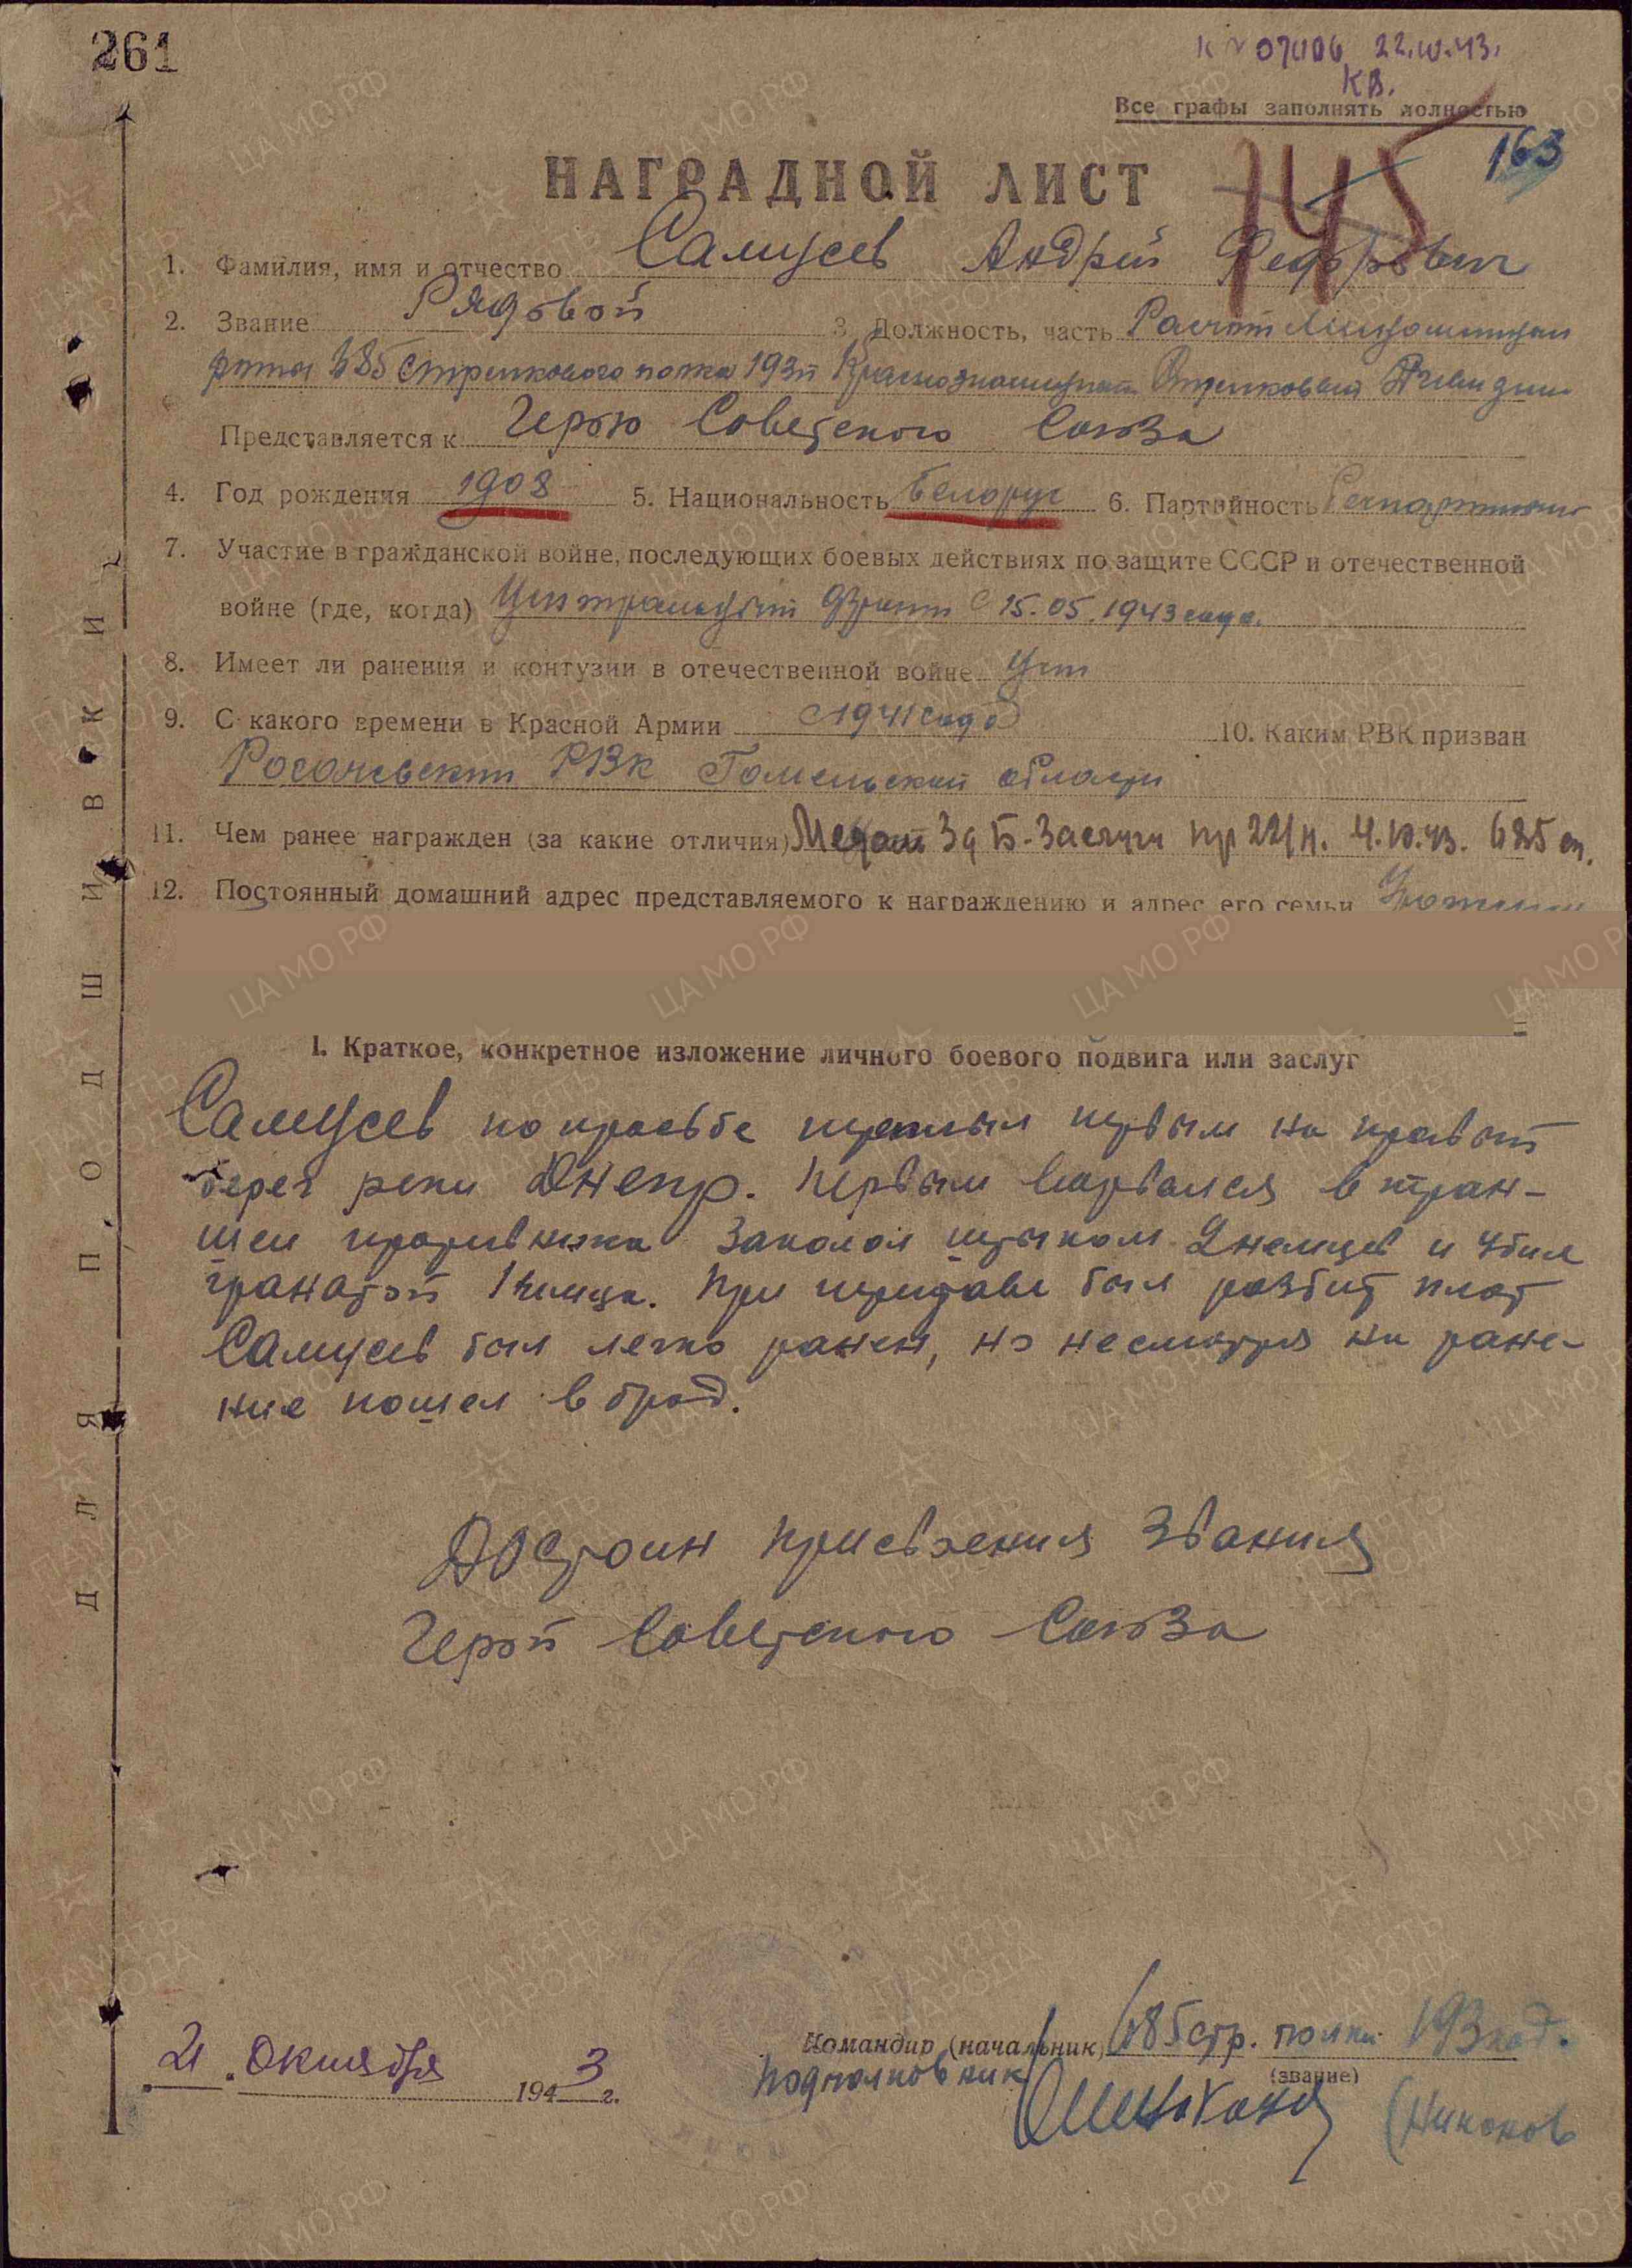 261
22.10.43.
КВ.
Все графы заполнять полностью
163
745
НАГРАДНОЙ ЛИСТ
1. Фамилия, имя и отчество Самусев Андрей Федорович
2. Звание Рядовой 3. Должность, часть
роты 685 стрелкового полка 193й Краснознаменной Стрелковой Дивизии
Представляется к Герою Советского Союза
4. Год рождения 1908 5. Национальность Белорус 6. Партийность Беспартийный
7. Участие в гражданской войне, последующих боевых действиях по защите СССР и отечественной
войне (где, когда) Центральный фронт с 15.05.1943 года.
8. Имеет ли ранения и контузии в отечественной войне
9. С какого времени в Красной Армии с 1941 года 10. Каким РВК призван
Рогачевским РВК Гомельской области
11. Чем ранее награжден (за какие отличия) Медаль За Б-Заслуги пр 22/н. 4.10.43. 685 сп.
12. Постоянный домашний адрес представляемого к награждению и адрес его семьи
1. Краткое, конкретное изложение личного боевого подвига или заслуг
Самусев по просьбе первым на правый
берег реки Днепр. Первым ворвался в тран-
шеи противника заколол штыком 2 немцев и убил
гранатой 1 немца. При переправе был разбит плот
Самусев был легко ранен, но несмотря на ране-
ние пошел в брод.
Достоин присвоения звания
Герой Советского Союза
21 . Октября 1943 г.
Командир (начальник) 685 стр. полка 193
подполковник
(звание)
ДЛЯ ПОДШИВКИ
ЦА МО РФ
ПАМЯТЬ НАРОДА